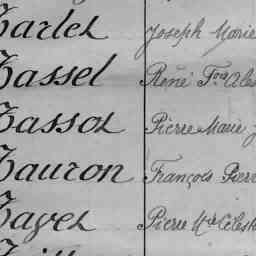 Barlet Joseph Marie
Bassel René Fois
Bassot Pierre Marie
Bauron François Pierr
Bayet Pierre Mie Célest